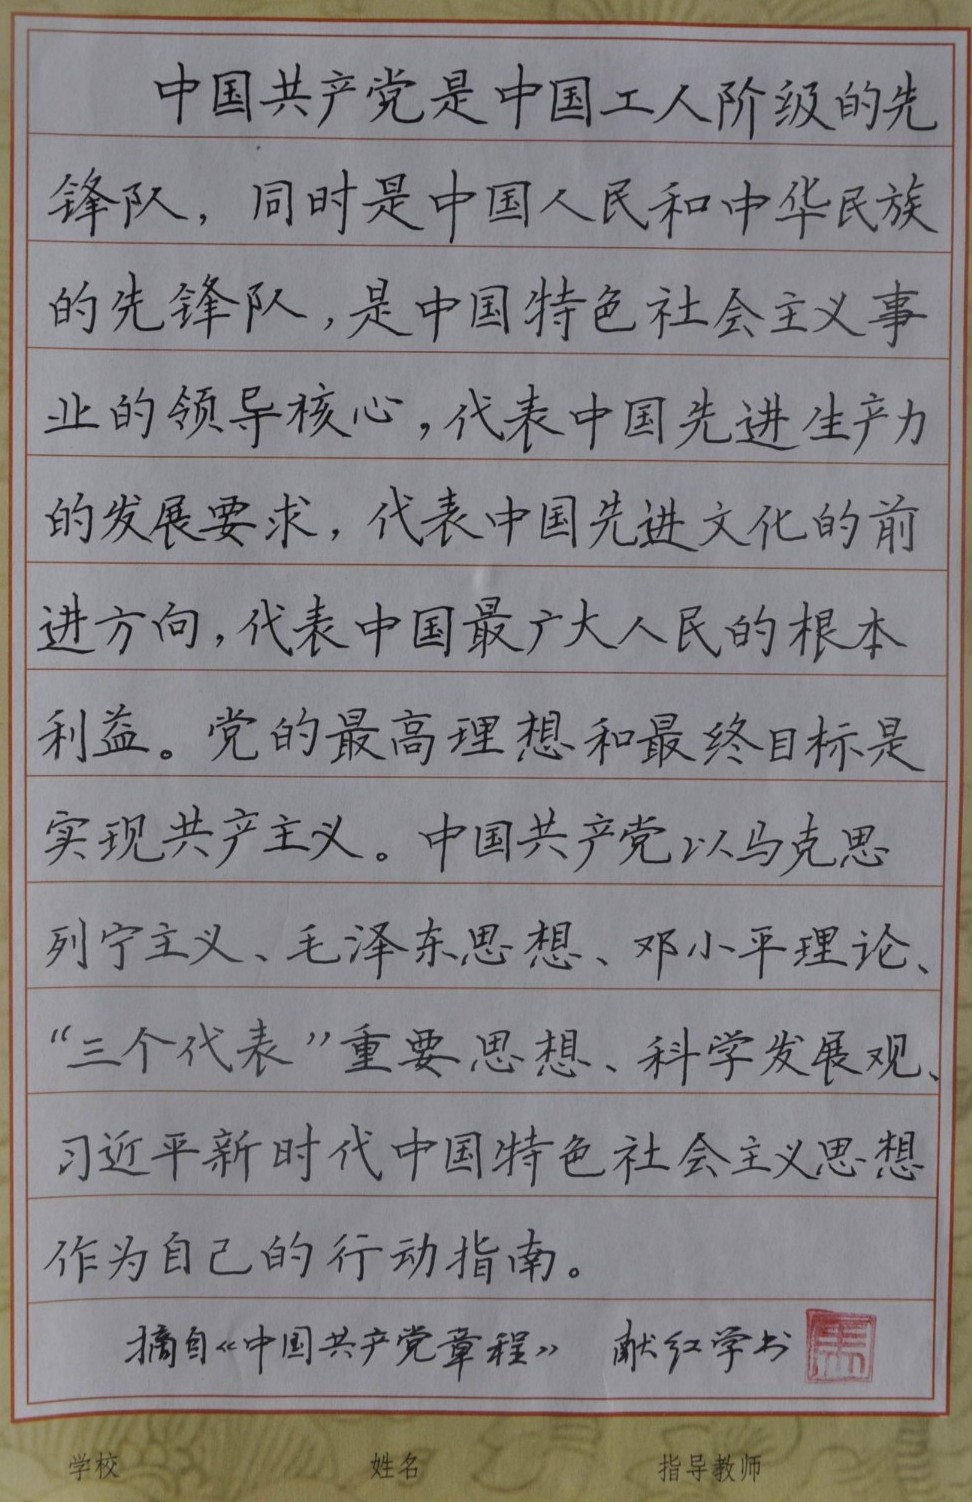 中国共产党是中国工人阶级的先
锋队，同时是中国人民和中华民族
的先锋队，是中国特色社会主义事
业的领导核心，代表中国先进生产力
的发展要求，代表中国先进文化的前
进方向，代表中国最广大人民的根本
利益。党的最高理想和最终目标是
实现共产主义。中国共产党以马克思
列宁主义、毛泽东思想、邓小平理论、
“三个代表”重要思想、科学发展观、
习近平新时代中国特色社会主义思想
作为自己的行动指南。
摘自《中国共产党章程》 献红学书
学校 姓名 指导教师